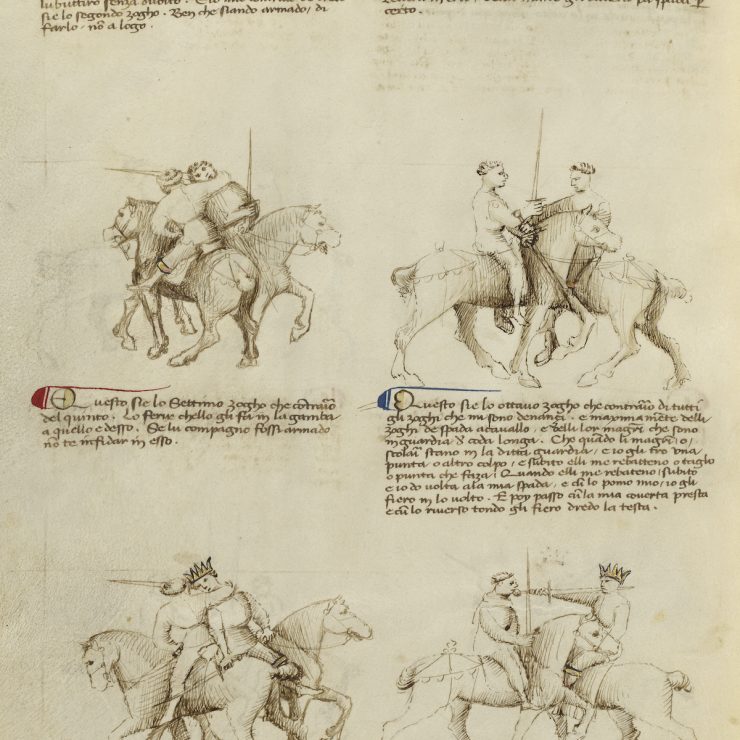 sie lo segondo zogho. Ben che stando armado, di
farlo, nō a logo.
certo.
Questo sie lo Settimo zogho che cōtrario
del quinto. Lo ferir chello gli fa in la gamba
a quello e desso. Se lu compagno fossi armado
nō te infidar in esso.
Questo sie lo ottavo zogho che contrario di tutti
gli zoghi che mi sono denanci. e maximamēte delli
zoghi de spada acavallo, e delli lor magistri che sono
in guardia de coda longa. Che quādo li magistri, o,
scolari stano in la ditta guardia, e io gli tro una
punta o altro colpo, e subito elli me rebatteno o taglio
o punta che faza. Quando elli me rebateno, subito
e io do volta ala mia spada, e cū lo pomo mio, io gli
fiero in lo volto. E poy passo cū la mia coverta presta
e cū lo riverso tondo gli fiero dredo la testa.